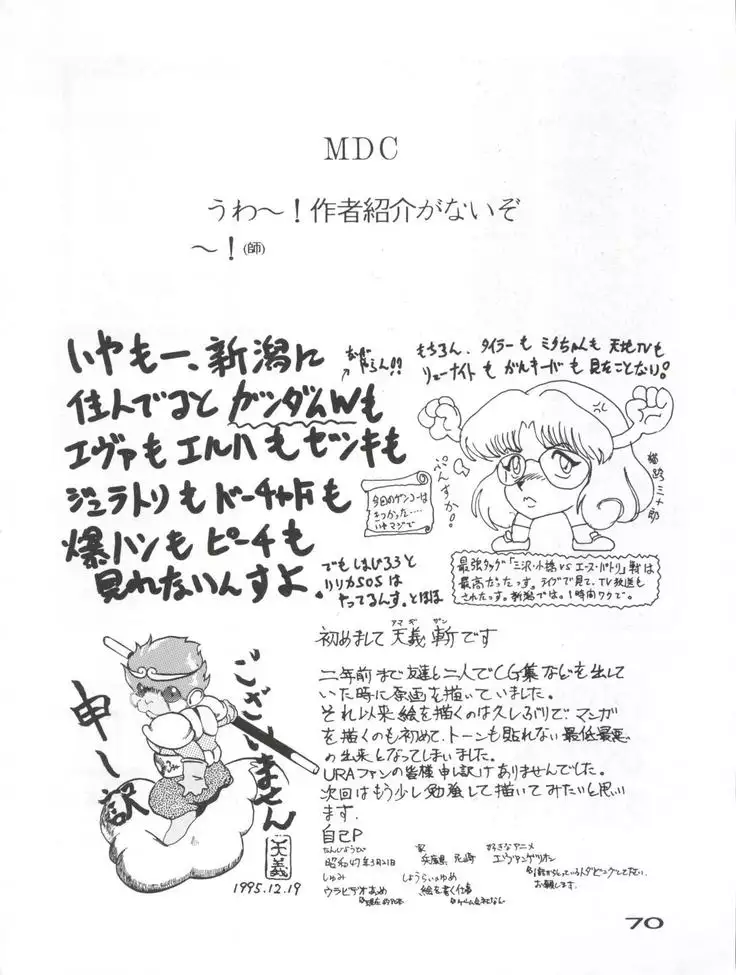 MDC
うわ～！作者紹介がないぞ
～！(師)
いやもー、新潟に
住んでると ガンダムWも
エヴァも エルハも ゼンキも
ジュラトリも バーチャFも
爆ハンも ピーチも
見れないんすよ。
なぜやらん!!
もちろん、タイラーも ミタちゃんも 天地TVも
リューナイトも ガルキーバも 見たことない!
ぷんすか!
猫路三十郎
今回のゲンコーは
きつかった……
いやマジで
でもしましまろうと
リリカSOSは
やってるんす。とほほ
最強タッグ「三沢・小橋 VS エース・パトリ」戦は
最高だったっす。ライブで見て、TV放送も
されたっす。新潟では。1時間ワクで。
アマギ ザン
初めまして 天義 斬です
二年前まで友達と二人でCG集などを出して
いた時に原画を描いていました。
それ以来絵を描くのは久しぶりで、マンガ
を描くのも初めて、トーンも貼れない最低最悪
の出来となってしまいました。
URAファンの皆様申し訳ありませんでした。
次回はもう少し勉強して描いてみたいと思い
ます。
自己P
たんじょうび
昭和47年3月21日
家
兵庫県 尼崎
好きなアニメ
エヴァンゲリオン
しゅみ
ウラビデオあつめ
しょうらいのゆめ
絵を書く仕事
申し訳
ございません
天義
1995.12.19
70